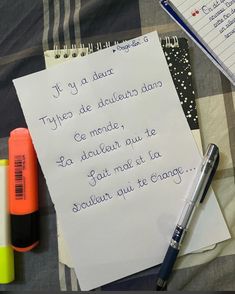 Il y a deux
Types de douleurs dans
ce monde,
La douleur qui te
fait mal et la
Douleur qui te change...